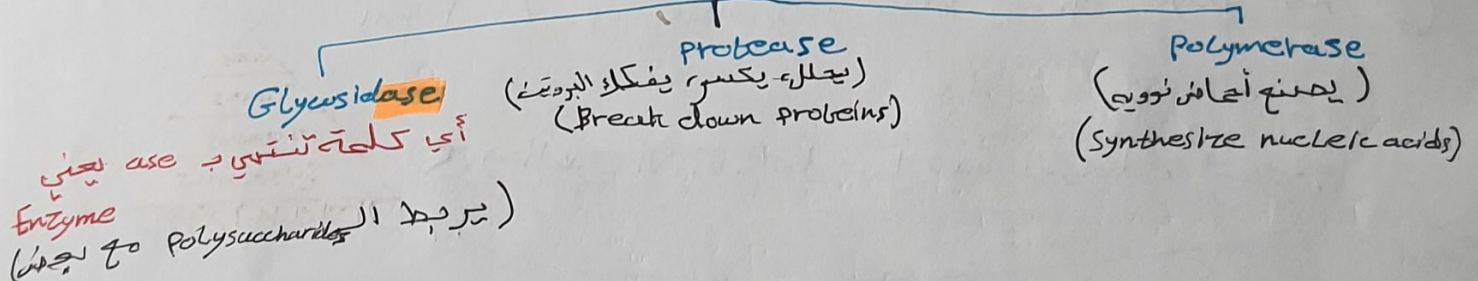 Glycosidase
أي كلمة تنتهي بـ ase يعني
Enzyme
(يربط الـ polysaccharides مع بعض)
protease
(يحلل، يكسر، يفكك البروتين)
(Break down proteins)
Polymerase
(يصنع أحماض نوويه)
(Synthesize nucleic acids)